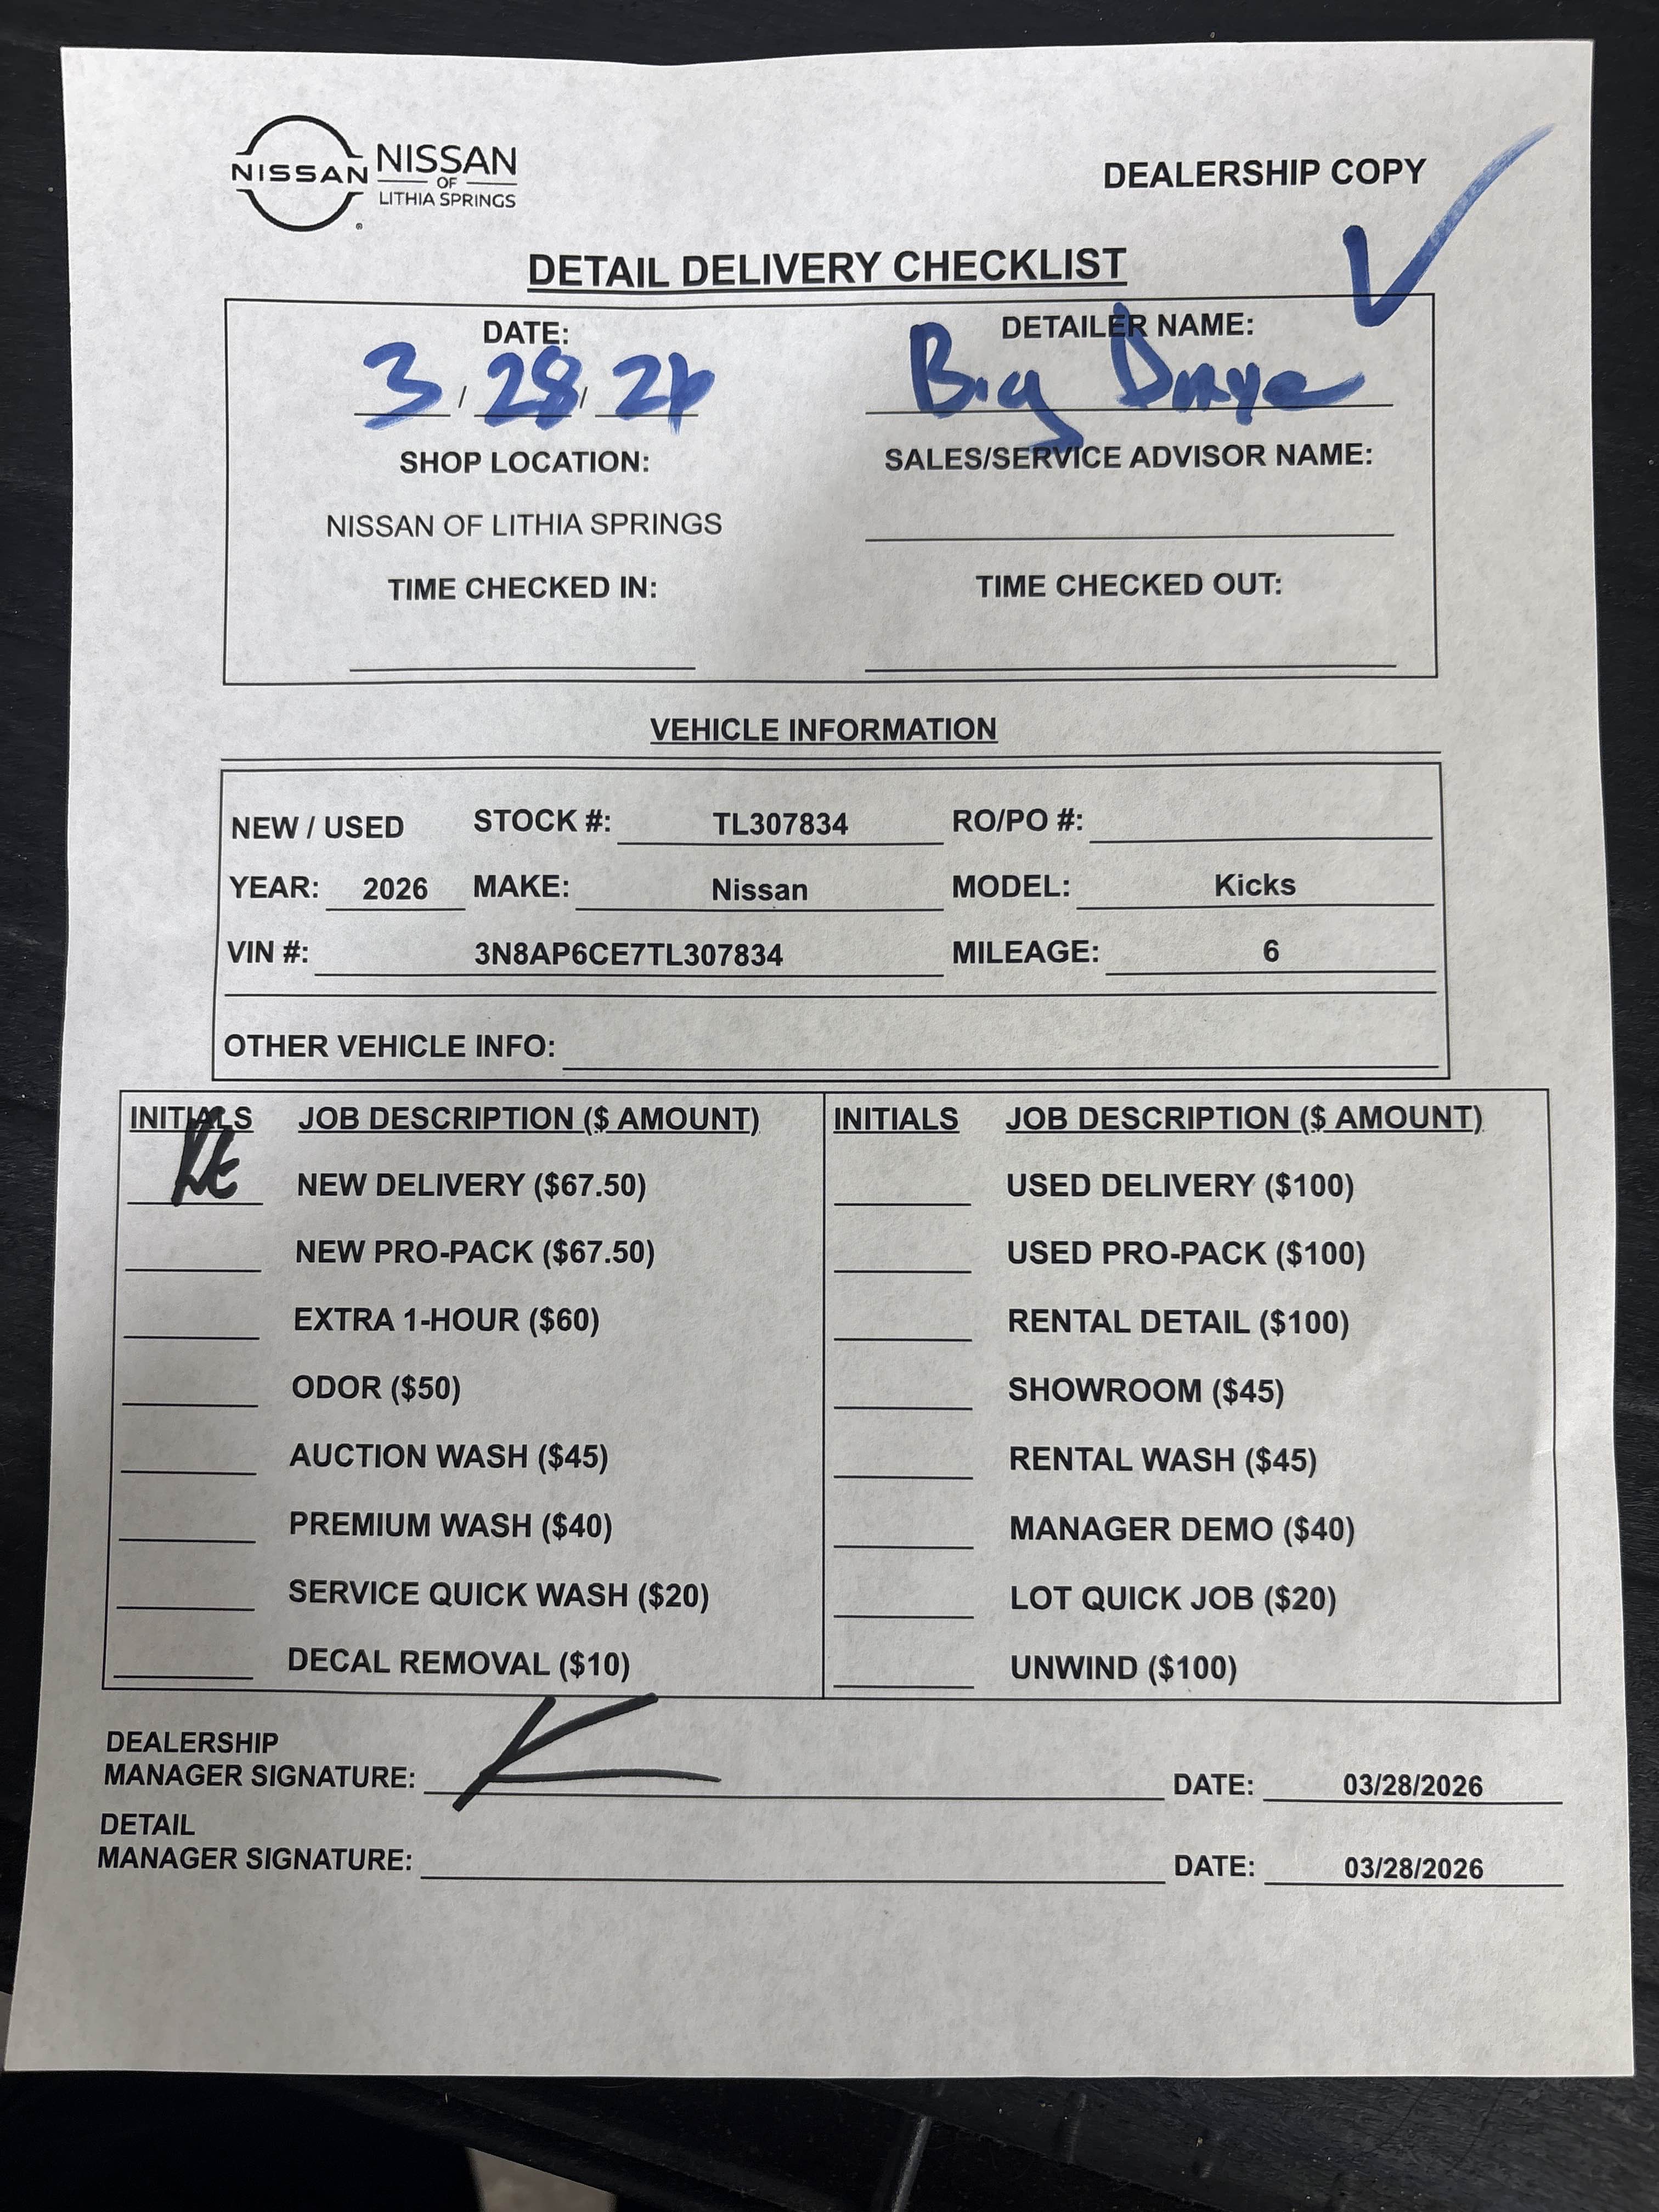 NISSAN NISSAN
OF
LITHIA SPRINGS
DEALERSHIP COPY
DETAIL DELIVERY CHECKLIST
DATE: DETAILER NAME:
3 / 28 / 26 Big
SHOP LOCATION: SALES/SERVICE ADVISOR NAME:
NISSAN OF LITHIA SPRINGS
TIME CHECKED IN: TIME CHECKED OUT:
VEHICLE INFORMATION
NEW / USED STOCK #: TL307834 RO/PO #:
YEAR: 2026 MAKE: Nissan MODEL: Kicks
VIN #: 3N8AP6CE7TL307834 MILEAGE: 6
OTHER VEHICLE INFO:
INITIALS JOB DESCRIPTION ($ AMOUNT) INITIALS JOB DESCRIPTION ($ AMOUNT)
NEW DELIVERY ($67.50) USED DELIVERY ($100)
NEW PRO-PACK ($67.50) USED PRO-PACK ($100)
EXTRA 1-HOUR ($60) RENTAL DETAIL ($100)
ODOR ($50) SHOWROOM ($45)
AUCTION WASH ($45) RENTAL WASH ($45)
PREMIUM WASH ($40) MANAGER DEMO ($40)
SERVICE QUICK WASH ($20) LOT QUICK JOB ($20)
DECAL REMOVAL ($10) UNWIND ($100)
DEALERSHIP
MANAGER SIGNATURE: DATE: 03/28/2026
DETAIL
MANAGER SIGNATURE: DATE: 03/28/2026